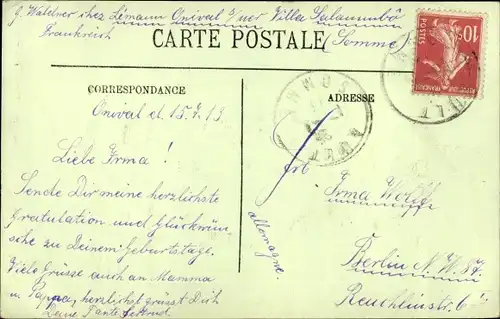 J. Waldner chez Lémann Onival s/mer Villa Salammbô
Frankreich (Somme)
CARTE POSTALE
POSTES 10
REPUBLIQUE FRANÇAISE
CORRESPONDANCE
ADRESSE
Onival d. 15.7.13
AULT
SOMME
Liebe Irma!
Sende Dir meine herzlichste
Gratulation und Glückwün
sche zu Deinem Geburtstage.
Viele Grüsse auch an Mamma
u. Pappa, herzlichst grüsst Dich
Deine Tante
Frl.
Irma Wolff
allemagne.
Berlin N.W. 87.
Reuchlinstr. 6